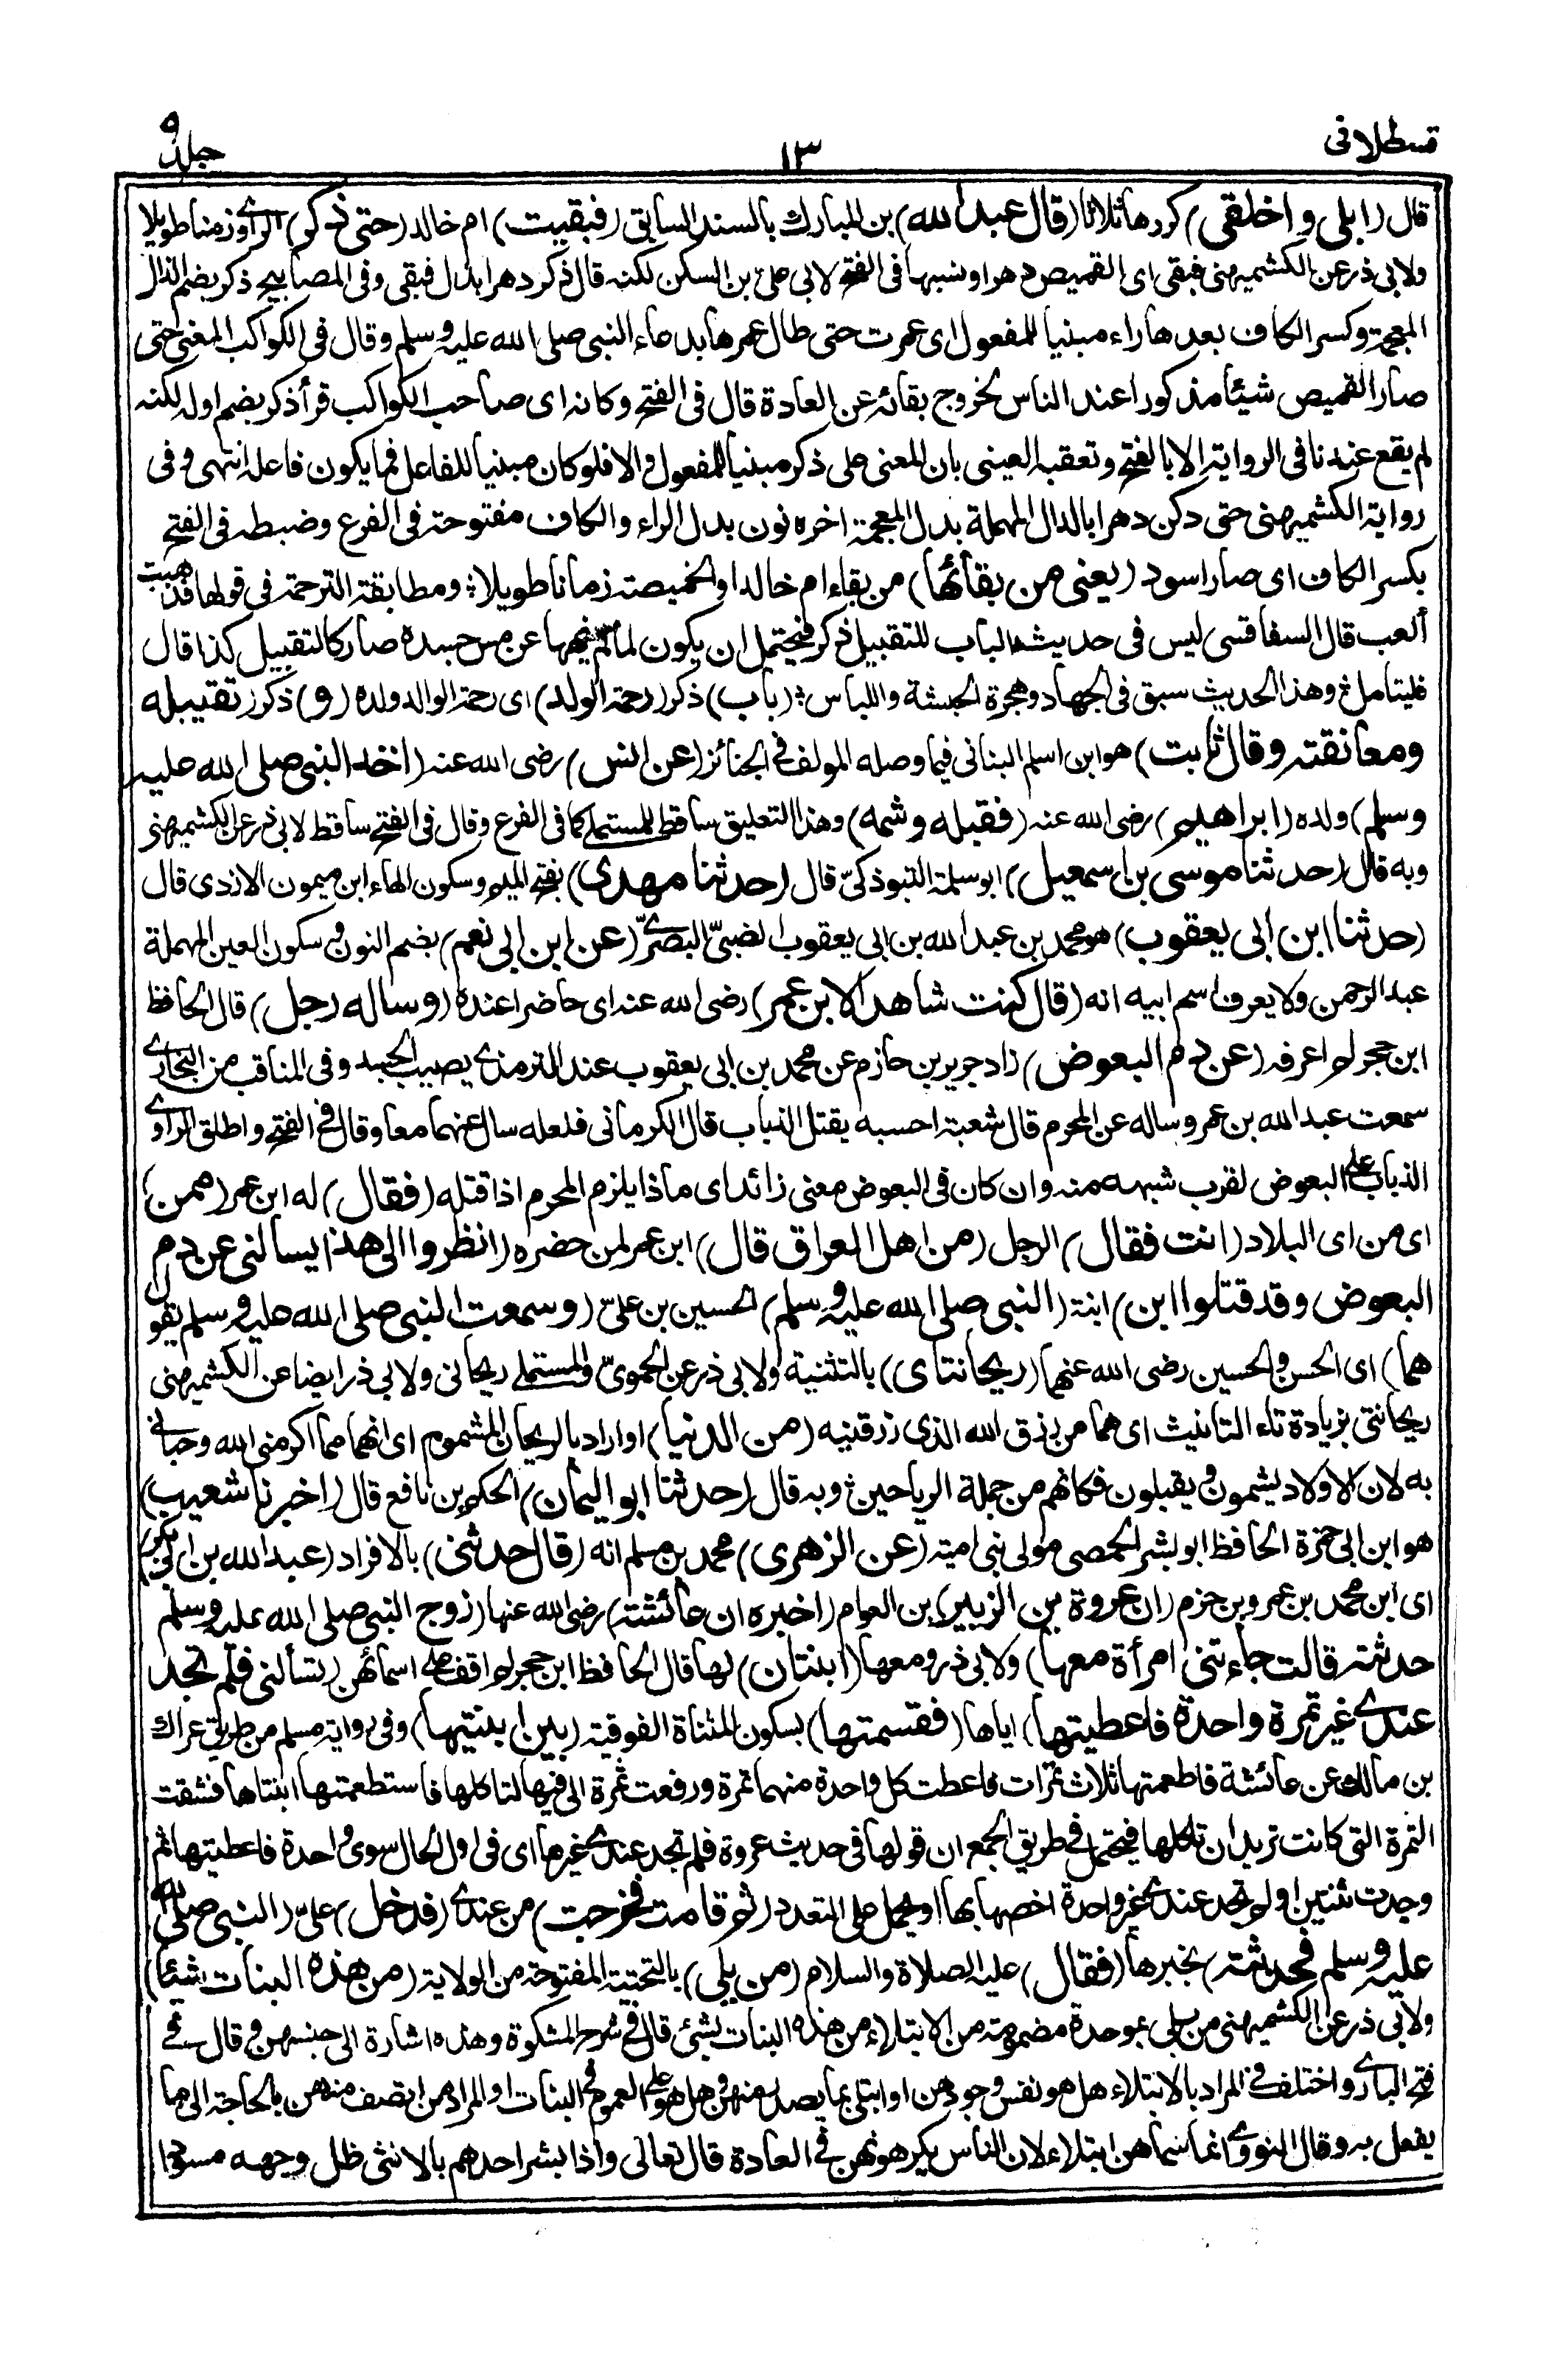 قسطلانی
١٣
جلد ٩
قال (ابلی و اخلقی) کررهاثلاثا (قال عبدالله) بن المبارك بالسند السابق (فبقیت) ام خالد (حتی ذکر) الراوی زمنا طویلا
ولابی ذر عن الکشمیهنی فبقی ای القمیص دهرا ونسبها فی الفتح لابی علی بن السکن لکنه قال ذکر دهرا بدل فبقی وفی المصابیح ذکر بضم الذال
المعجمة وکسر الکاف بعدها راء مبنیا للمفعول ای عمرت حتی طال عمرها بدعاء النبی صلی الله علیه وسلم وقال فی الکواکب المغنی حتی
صار القمیص شیئا مذکورا عند الناس لخروج بقائه عن العادة قال فی الفتح وکانه ای صاحب الکواکب قرأ ذکر بضم اوله لکنه
لم یقع عندنا فی الروایة الا بالفتح وتعقبه العینی بان المعنی علی ذکر مبنیا للمفعول والا فلو کان مبنیا للفاعل فما یکون فاعله انتهی وفی
روایة الکشمیهنی حتی دکن دهرا بالدال المهملة بدل المعجمة اخره نون بدل الراء والکاف مفتوحة فی الفرع وضبطه فی الفتح
بکسر الکاف ای صار اسود (یعنی من بقائها) من بقاء ام خالد او الخمیصة زمانا طویلا؛ ومطابقة الترجمة فی قولها فذهبت
ألعب قال السفاقسی لیس فی حدیث الباب للتقبیل ذکر فیحتمل ان یکون لما لم ینهها عن مس جسده صار کالتقبیل کذا قال
فلیتامل؛ وهذا الحدیث سبق فی الجهاد وهجرة الحبشة واللباس؛ (باب) ذکر (رحمة الولد) ای رحمة الوالد ولده (و) ذکر (تقبیله
ومعانقته وقال ثابت) هو ابن اسلم البنانی فیما وصله المولف فی الجنائز (عن انس) رضی الله عنه (اخذ النبی صلی الله علیه
وسلم) ولده (ابراهیم) رضی الله عنه (فقبله وشمه) وهذا التعلیق ساقط للمستملی کما فی الفرع وقال فی الفتح ساقط لابی ذر عن الکشمیهنی
وبه قال (حدثنا موسی بن اسمعیل) ابو سلمة التبوذکیّ قال (حدثنا مهدی) بفتح المیم وسکون الهاء ابن میمون الازدی قال
(حدثنا ابن ابی یعقوب) هو محمد بن عبد الله بن ابی یعقوب الضبیّ البصریّ (عن ابن ابی نعم) بضم النون وسکون العین المهملة
عبد الرحمن ولا یعرف اسم ابیه انه (قال کنت شاهدا لابن عمر) رضی الله عنه ای حاضرا عنده (وساله رجل) قال الحافظ
ابن حجر لم اعرفه (عن دم البعوض) زاد جریر بن حازم عن محمد بن ابی یعقوب عند الترمذی یصیب الجسد وفی المناقب من البخاری
سمعت عبد الله بن عمر وساله عن المحرم قال شعبة احسبه یقتل الذباب قال الکرمانی فلعله سال عنهما معا وقال فی الفتح واطلق الراوی
الذباب علی البعوض لقرب شبهه منه وان کان فی البعوض معنی زائد ای ماذا یلزم المحرم اذا قتله (فقال) له ابن عمر (ممن)
ای من ای البلاد (انت فقال) الرجل (من اهل العراق قال) ابن عمر لمن حضره (انظروا الی هذا یسالنی عن دم
البعوض وقد قتلوا ابن) ابنة (النبی صلی الله علیه وسلم) الحسین بن علیّ (وسمعت النبی صلی الله علیه وسلم یقول
هما) ای الحسن والحسین رضی الله عنهما (ریحانتای) بالتثنیة ولابی ذر عن الحمویّ والمستملی ریحانی ولابی ذر ایضا عن الکشمیهنی
ریحانتی بزیادة تاء التانیث ای هما من رزق الله الذی رزقنیه (من الدنیا) او اراد بالریحان المشموم ای انهما مما اکرمنی الله وحبانی
به لان الاولاد یشمون ویقبلون فکانهم من جملة الریاحین؛ وبه قال (حدثنا ابو الیمان) الحکم بن نافع قال (اخبرنا شعیب)
هو ابن ابی حمزة الحافظ ابو بشر الحمصی مولی بنی امیة (عن الزهری) محمد بن مسلم انه (قال حدثنی) بالافراد (عبد الله بن ابی بکر)
ای ابن محمد بن عمرو بن حزم (ان عروة بن الزبیر) بن العوام (اخبره ان عائشة) رضی الله عنها (زوج النبی صلی الله علیه وسلم
حدثته قالت جاءتنی امرأة معها) ولابی ذر ومعها (ابنتان) لها قال الحافظ ابن حجر لم اقف علی اسمائهن (تسألنی فلم تجد
عندی غیر تمرة واحدة فاعطیتها) ایاها (فقسمتها) بسکون المثناة الفوقیة (بین ابنتیها) وفی روایة مسلم من طریق عراك
بن مالك عن عائشة فاطعمتها ثلاث تمرات فاعطت کل واحدة منهما تمرة ورفعت تمرة الی فیها لتاکلها فاستطعمتها ابنتاها فشقت
التمرة التی کانت ترید ان تاکلها فیحتمل فی طریق الجمع ان قولها فی حدیث عروة فلم تجد عندی غیرها ای فی اول الحال سوی واحدة فاعطیتها ثم
وجدت ثنتین او لم تجد عندی غیر واحدة اخصها بها او یحمل علی التعدد (ثم قامت فخرجت) من عندی (فدخل) علیّ (النبی صلی الله
علیه وسلم فحدثته) بخبرها (فقال) علیه الصلاة والسلام (من یلی) بالتحتیة المفتوحة من الولایة (من هذه البنات شیئا)
ولابی ذر عن الکشمیهنی من بلی بموحدة مضمومة من الابتلاء من هذه البنات بشیٔ قال فی شرح المشکوة وهذه اشارة الی جنسهن وقال فی
فتح الباری واختلف فی المراد بالابتلاء هل هو نفس وجودهن او ابتلی بما یصدر منهن وهل هو علی العموم فی البنات او المراد من اتصف منهن بالحاجة الی ما
یفعل به وقال النووی انما سماهن ابتلاء لان الناس یکرهونهن فی العادة قال تعالی واذا بشر احدهم بالانثی ظل وجهه مسودا